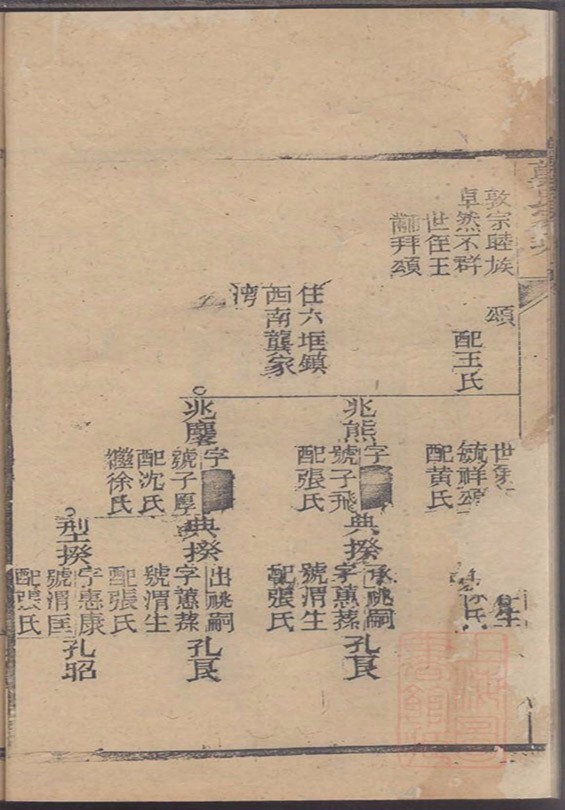 敦宗睦族
卓然不群
世侄王
黼拜頌
頌
配王氏
住六垤鎮
西南龔家
湾
兆熊
字
號子飛
配張氏
兆慶
字
號子厚
配沈氏
繼徐氏
毓祥
配黄氏
典揆
承祧嗣
字蕙蓀
號渭生
配張氏
孔艮
典揆
出祧嗣
字蕙蓀
號渭生
配張氏
孔艮
型揆
字惠康
號渭匡
配張氏
孔昭